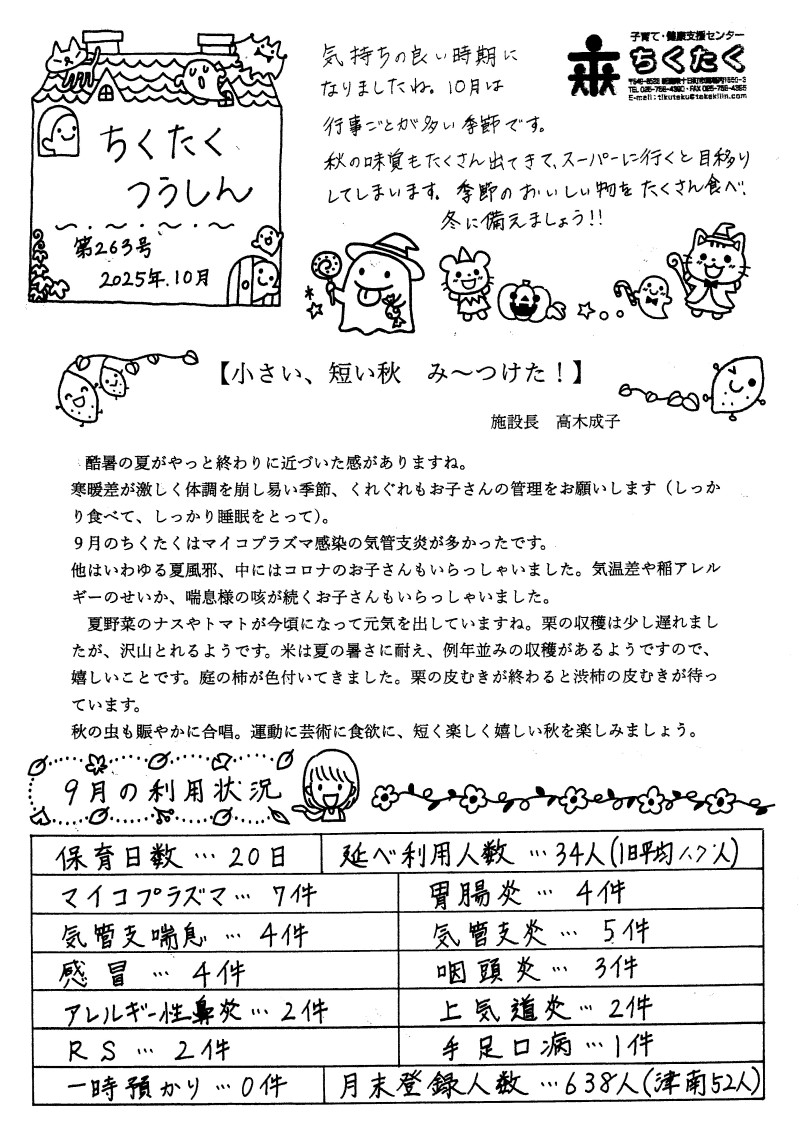 ちくたく
つうしん
第263号
2025年.10月
気持ちの良い時期に
なりましたね。10月は
行事ごとが多い季節です。
秋の味覚もたくさん出てきて、スーパーに行くと目移り
してしまいます。季節のおいしい物をたくさん食べ、
冬に備えましょう!!
子育て・健康支援センター
ちくたく
【小さい、短い秋　み～つけた！】
施設長　高木成子
酷暑の夏がやっと終わりに近づいた感がありますね。
寒暖差が激しく体調を崩し易い季節、くれぐれもお子さんの管理をお願いします（しっか
り食べて、しっかり睡眠をとって）。
９月のちくたくはマイコプラズマ感染の気管支炎が多かったです。
他はいわゆる夏風邪、中にはコロナのお子さんもいらっしゃいました。気温差や稲アレル
ギーのせいか、喘息様の咳が続くお子さんもいらっしゃいました。
夏野菜のナスやトマトが今頃になって元気を出していますね。栗の収穫は少し遅れまし
たが、沢山とれるようです。米は夏の暑さに耐え、例年並みの収穫があるようですので、
嬉しいことです。庭の柿が色付いてきました。栗の皮むきが終わると渋柿の皮むきが待っ
ています。
秋の虫も賑やかに合唱。運動に芸術に食欲に、短く楽しく嬉しい秋を楽しみましょう。
９月の利用状況
保育日数…20日
延べ利用人数…34人(1日平均1.7人)
マイコプラズマ…7件
胃腸炎…4件
気管支喘息…4件
気管支炎…5件
感冒…4件
咽頭炎…3件
アレルギー性鼻炎…2件
上気道炎…2件
RS…2件
手足口病…1件
一時預かり…0件
月末登録人数…638人(津南52人)